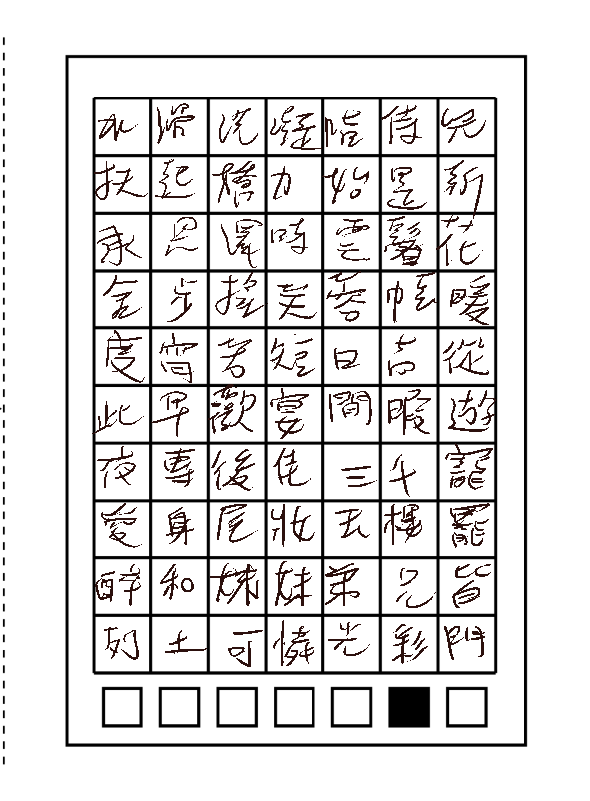 水滑洗凝脂侍兒
扶起嬌力始是新
承恩澤時雲鬢花
金步搖芙蓉帳暖
度宵苦短日高從
此早歡宴間暇遊
夜專後佳三千寵
愛身屋妝玉樓罷
醉和姊妹弟兄皆
列土可憐光彩門